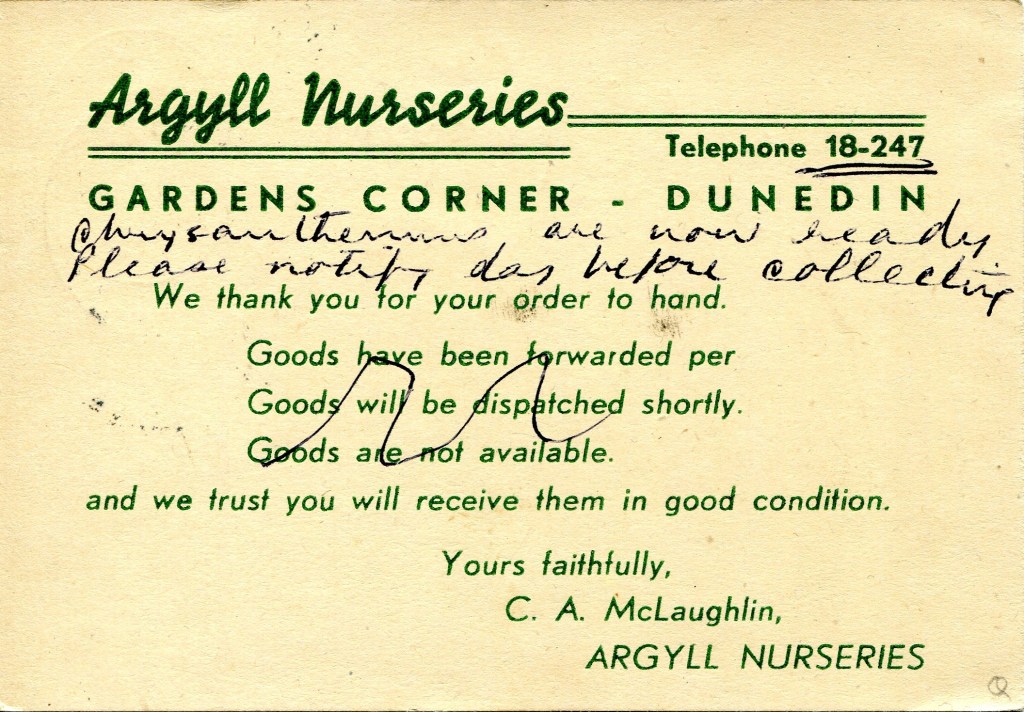 Argyll Nurseries
Telephone 18-247
GARDENS CORNER - DUNEDIN
Chrysanthemums are now ready
Please notify day before collecting
We thank you for your order to hand.
Goods have been forwarded per
Goods will be dispatched shortly.
Goods are not available.
and we trust you will receive them in good condition.
Yours faithfully,
C. A. McLaughlin,
ARGYLL NURSERIES